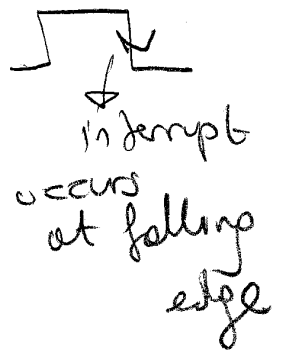 interrupt
occurs
at falling
edge